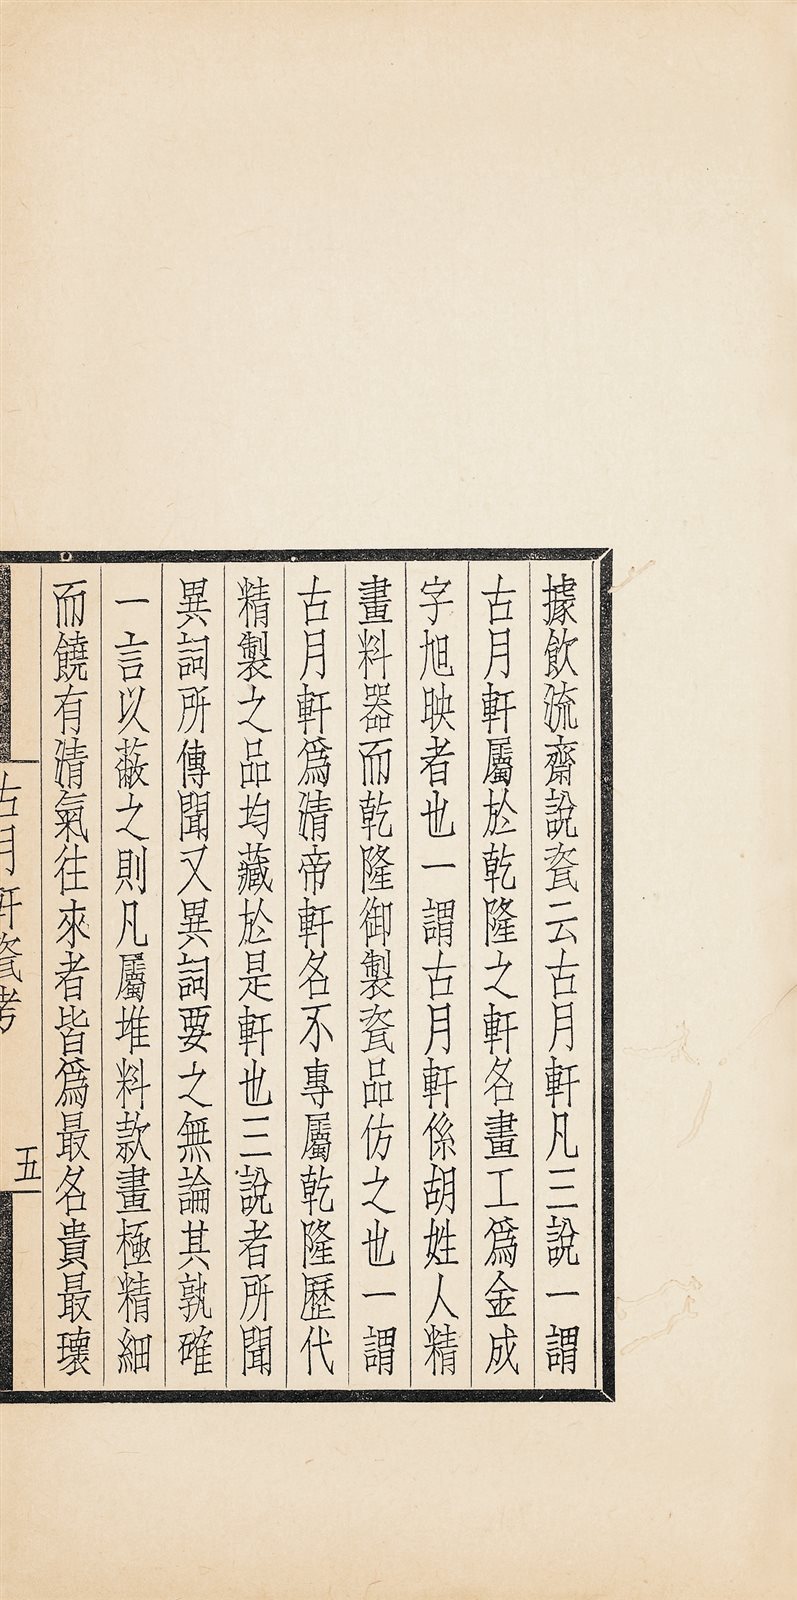 據飲流齋說瓷云古月軒凡三說一謂
古月軒屬於乾隆之軒名畫工爲金成
字旭映者也一謂古月軒係胡姓人精
畫料器而乾隆御製瓷品仿之也一謂
古月軒爲清帝軒名不專屬乾隆歷代
精製之品均藏於是軒也三說者所聞
異詞所傳聞又異詞要之無論其孰確
一言以蔽之則凡屬堆料款畫極精細
而饒有清氣往來者皆爲最名貴最瓌
古月軒瓷考
五